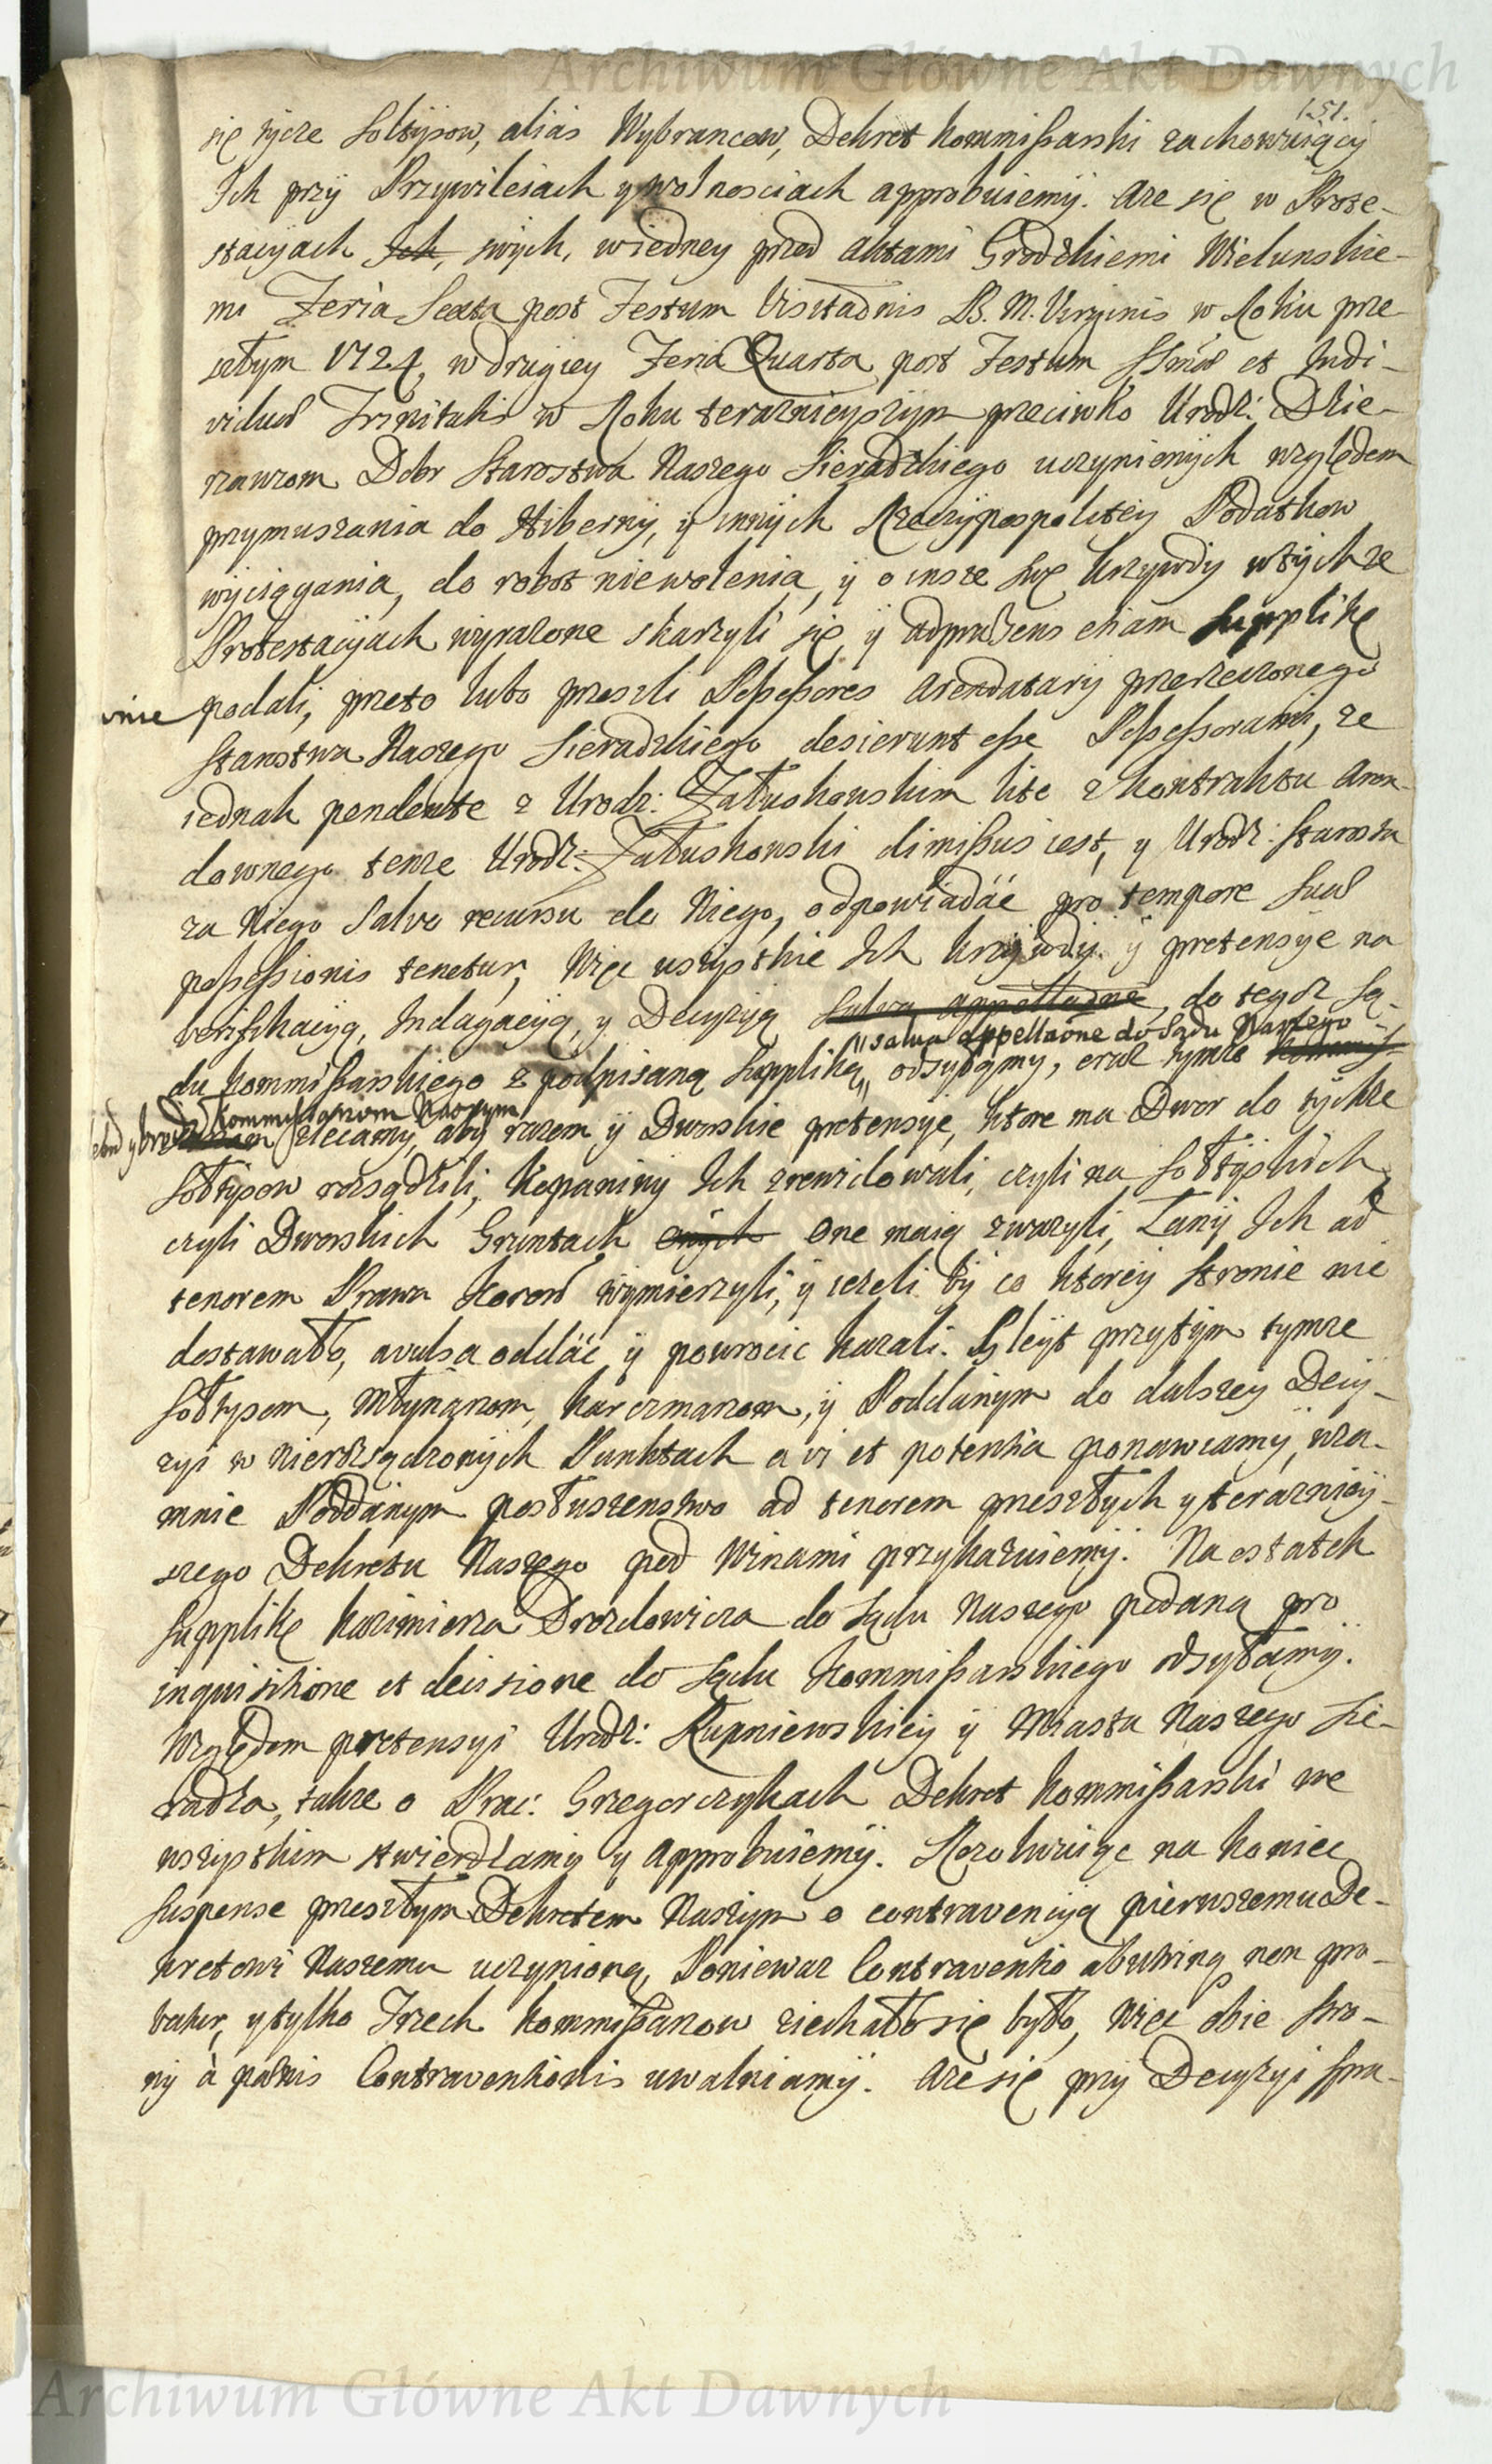 Archiwum Główne Akt Dawnych
151.
się tycze Soltysow, alias Wybrancow, Dekret Kommissarski zachowuiący
Ich przy Przywileiach y wolnosciach approbuiemy. Aze się w Prote-
stacyach Ich, swych, wiedney przed Aktami Grodzkiemi Wielunskie-
mi Feria Sexta post Festum Visitaonis B. M. Virginis w Roku prze-
szłym 1724, w drugiey Feria Quarta post Festum SSmæ et Indi-
viduæ Trinitatis w Roku teraznieyszym przeciwko Urodz: Dzie-
rzawzom Dobr Starostwa Naszego Sieradzkiego uczynionych względem
przymuszania do Hiberny, y innych Rzeczypospolitey Podatkow
wyciągania, do robot niewolenia, y o insze swe krzywdy w tychze
Protestacyach wyrazone skarzyli się, y ad præsens etiam Supplikę
podali, przeto lubo przeszli Possessores Arendatary przerzeczonego
Starostwa Naszego Sieradzkiego desierunt esse Possessorami, ze
iednak pendente z Urodz: Załuskowskim lite z Kontraktu Aren-
downego tenze Urodz: Załuskowski dimissus iest, y Urodz: Starosta
za Niego salvo recursu do Niego, odpowiadać pro tempore suæ
possessionis tenetur, Więc wszystkie Ich krzywdy y pretensye na
veriffikacyą, Indagacyą, y Decyzyą salva appellaone, do tegoz Są-
salva appellaone do Sądu Naszego
du Kommissarskiego z podpisaną Suppliką odsyłamy, oraz tymze Kommis-
Kommissarzom Naszym
zlecamy, aby razem y Dworskie pretensye, ktore ma Dwor do tychze
Sołtysow rozsądzili, Kopaniny Ich zrewidowali, czyli na Sołtyskich
czyli Dworskich Gruntach onych one maią zwazyli, Łany Ich ad
tenorem Prawa Koron wymierzyli, y iezeli by co ktorey stronie nie
dostawało, avulsa oddać y powrocic kazali. Gleyt przytym tymze
Sołtysom, Młynarzom, Karczmarzom, y Poddanym do dalszey Decy-
zyi w nierozsądzonych Punktach a vi et potentia ponawiamy, wza-
mnie Poddanym posłuszenstwo ad tenorem przeszłych y teraznièy-
szego Dekretu Naszego pod Winami przykazuiemy. Na ostatek
Supplikę Kazimierza Drozdowicza do Sądu Naszego podaną pro
inquisitione et decisione do Sądu Kommissarskiego odsyłamy.
Względem pretensyi Urodz: Rupniewskiey y Miasta Naszego Sie-
radza, takze o Prac: Grzegorczykach Dekret Kommissarski we
wszystkim stwierdzamy y approbuiemy. Rezolwuiąc na koniec
suspense przeszłym Dekretem Naszym o contravencyą pierwszemu De-
kretowi Naszemu uczynioną, Poniewaz Contraventio abutrinq non pro-
batur, y tylko Trzech Kommissarzow ziechało się było, Więc obie stro-
ny à pœnis Contraventionis uwalniamy. Aze się przy Decyzyi spra-
Archiwum Główne Akt Dawnych